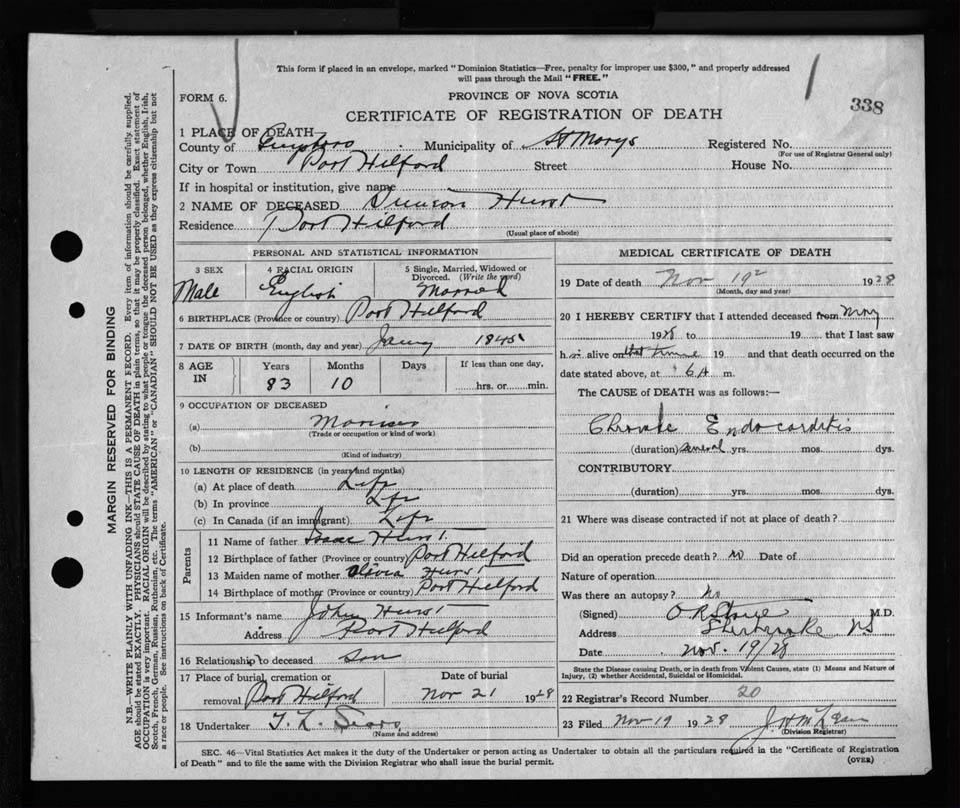 This form if placed in an envelope, marked "Dominion Statistics—Free, penalty for improper use $300," and properly addressed
will pass through the Mail "FREE."
FORM 6.
PROVINCE OF NOVA SCOTIA
338
CERTIFICATE OF REGISTRATION OF DEATH
1 PLACE OF DEATH—
County of Municipality of St Marys Registered No.
(For use of Registrar General only)
City or Town Port Hilford Street House No.
If in hospital or institution, give name
2 NAME OF DECEASED Duncan Hurst
Residence Port Hilford
(Usual place of abode)
PERSONAL AND STATISTICAL INFORMATION
3 SEX
Male
4 RACIAL ORIGIN
English
5 Single, Married, Widowed or
Divorced. (Write the word)
Married
6 BIRTHPLACE (Province or country) Port Hilford
7 DATE OF BIRTH (month, day and year) 1845
8 AGE
IN
Years
83
Months
10
Days
If less than one day,
hrs. or min.
9 OCCUPATION OF DECEASED
(a) Mariner
(Trade or occupation or kind of work)
(b)
(Kind of industry)
10 LENGTH OF RESIDENCE (in years and months)
(a) At place of death Life
(b) In province Life
(c) In Canada (if an immigrant) Life
Parents
11 Name of father Isaac Hurst
12 Birthplace of father (Province or country) Port Hilford
13 Maiden name of mother Olivia Hurst
14 Birthplace of mother (Province or country) Port Hilford
15 Informant's name John Hurst
Address Port Hilford
16 Relationship to deceased son
17 Place of burial, cremation or
removal Port Hilford
Date of burial
Nov 21 1928
18 Undertaker
(Name and address)
MEDICAL CERTIFICATE OF DEATH
19 Date of death Nov 19 1928
(Month, day and year)
20 I HEREBY CERTIFY that I attended deceased from May
1928 to 19 that I last saw
h im alive on that time 19 and that death occurred on the
date stated above, at 6 A m.
The CAUSE of DEATH was as follows:—
Chronic Endocarditis
(duration) several yrs. mos. dys.
CONTRIBUTORY
(duration) yrs. mos. dys.
21 Where was disease contracted if not at place of death?
Did an operation precede death? No Date of
Nature of operation
Was there an autopsy? No
(Signed) M.D.
Address Sherbrooke NS
Date Nov. 19/28
State the Disease causing Death, or in death from Violent Causes, state (1) Means and Nature of
Injury, (2) whether Accidental, Suicidal or Homicidal.
22 Registrar's Record Number 20
23 Filed Nov 19 1928
(Division Registrar)
SEC. 46—Vital Statistics Act makes it the duty of the Undertaker or person acting as Undertaker to obtain all the particulars required in the "Certificate of Registration
of Death" and to file the same with the Division Registrar who shall issue the burial permit.
(OVER)
MARGIN RESERVED FOR BINDING
N.B.—WRITE PLAINLY WITH UNFADING INK—THIS IS A PERMANENT RECORD. Every item of information should be carefully supplied.
AGE should be stated EXACTLY. PHYSICIANS should STATE CAUSE OF DEATH in plain terms, so that it may be properly classified. Exact statement of
OCCUPATION is very important. RACIAL ORIGIN will be described by stating to what people or tongue the deceased person belonged, whether English, Irish,
Scotch, French, German, Russian, Ruthenian, etc. The terms "AMERICAN" or "CANADIAN" SHOULD NOT BE USED as they express citizenship but not
a race or people. See instructions on back of Certificate.